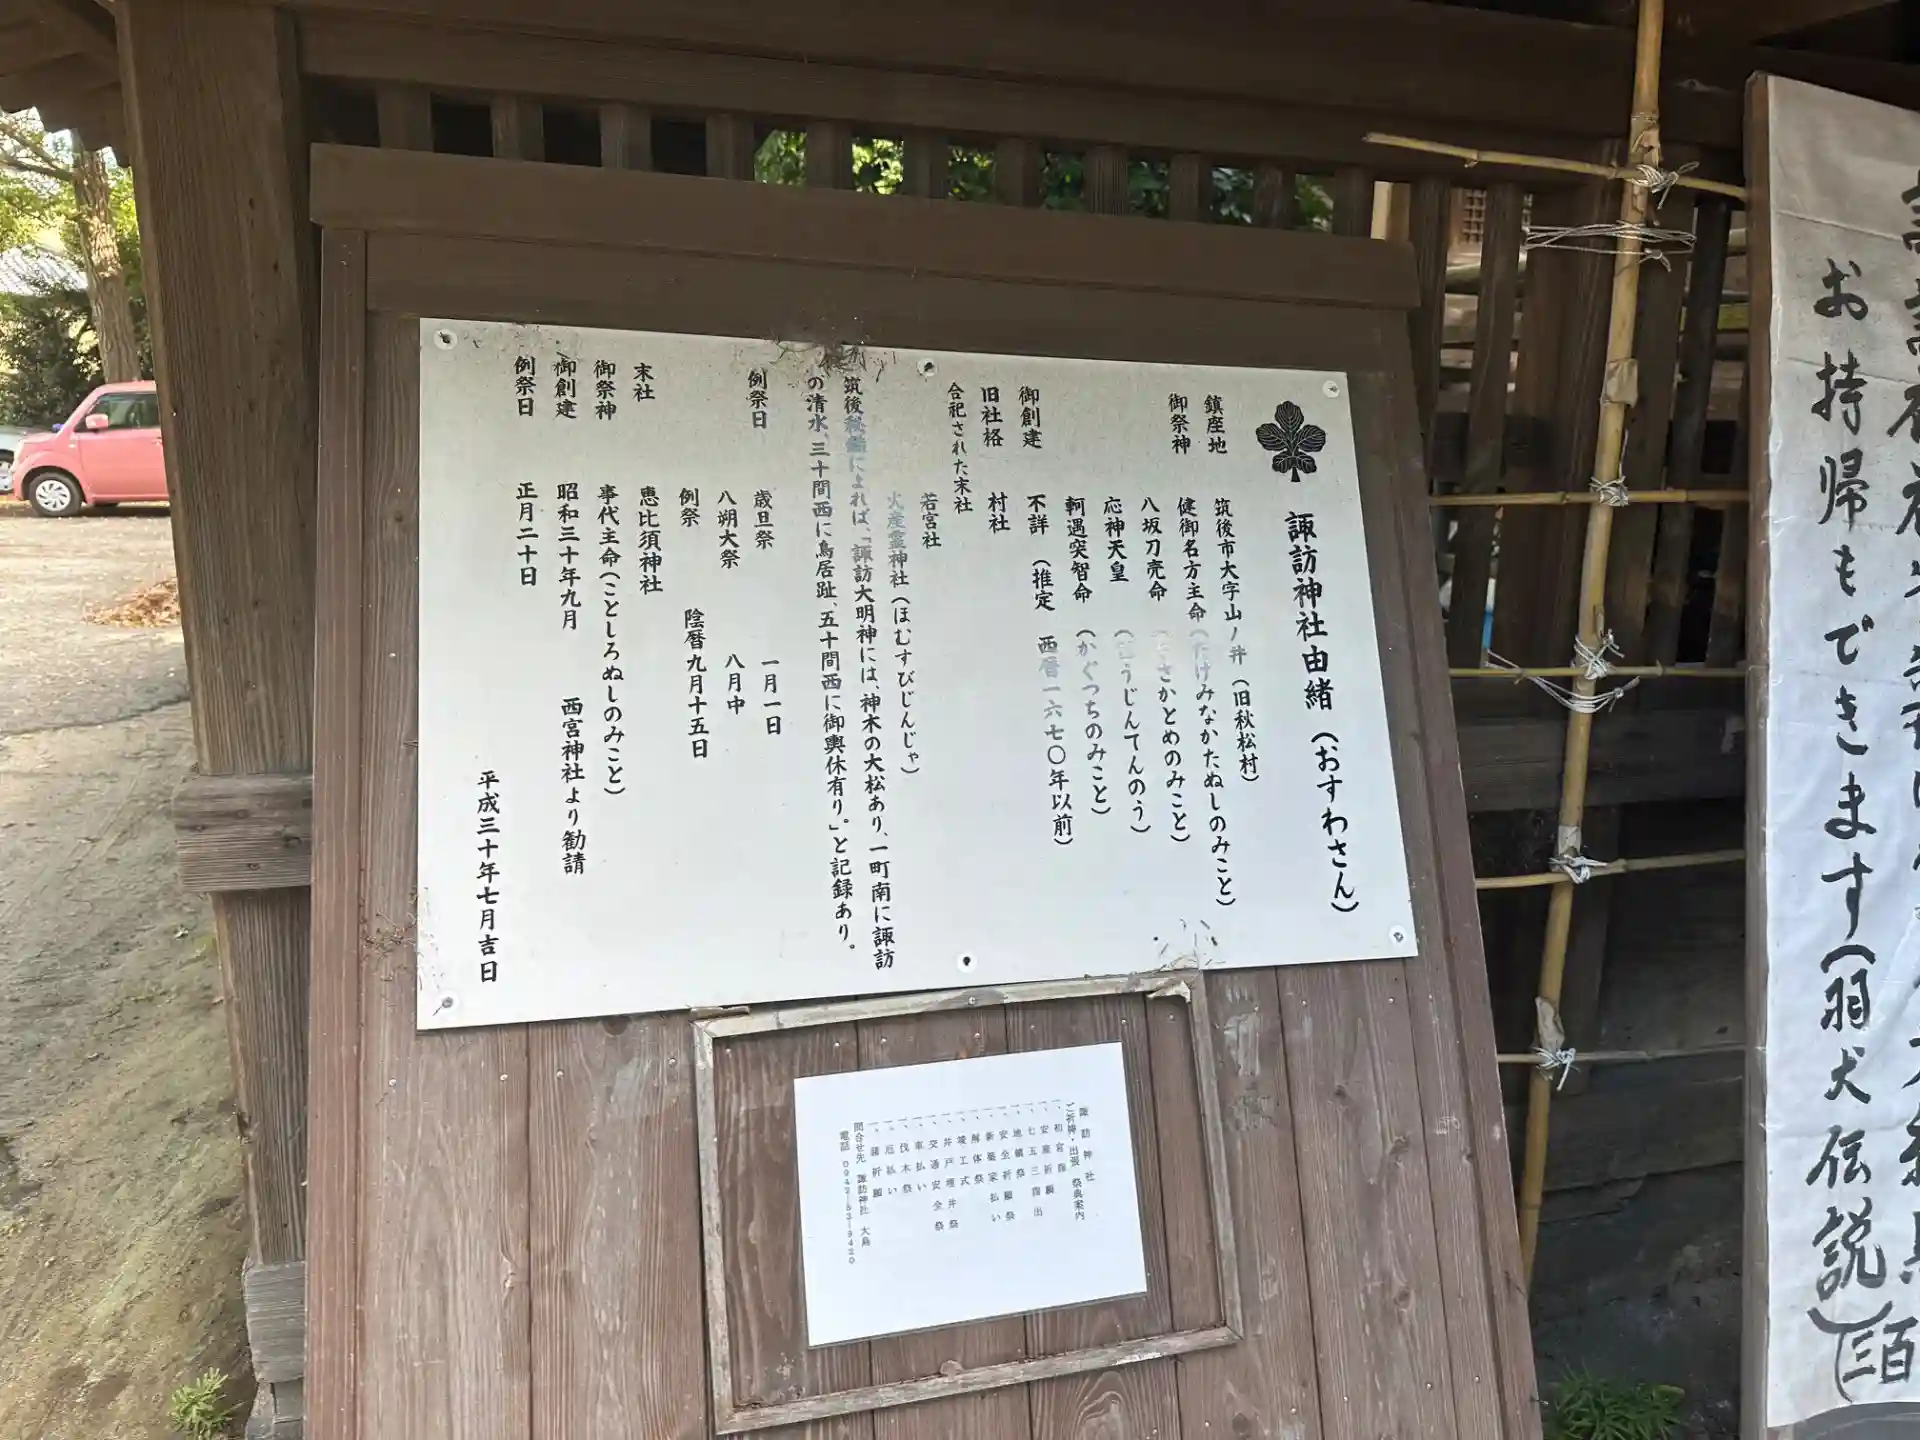 諏訪神社由緒(おすわさん)
鎮座地 筑後市大字山ノ井(旧秋松村)
御祭神 健御名方主命(たけみなかたぬしのみこと)
八坂刀売命(やさかとめのみこと)
応神天皇(おうじんてんのう)
軻遇突智命(かぐつちのみこと)
御創建 不詳(推定 西暦一六七〇年以前)
旧社格 村社
合祀された末社
若宮社
火産霊神社(ほむすびじんじゃ)
筑後秘鑑によれば、「諏訪大明神には、神木の大松あり、一町南に諏訪
の清水、三十間西に鳥居趾、五十間西に御輿休有り。」と記録あり。
例祭日 歳旦祭 一月一日
八朔大祭 八月中
例祭 陰暦九月十五日
末社 恵比須神社
御祭神 事代主命(ことしろぬしのみこと)
御創建 昭和三十年九月 西宮神社より勧請
例祭日 正月二十日
平成三十年七月吉日
諏訪神社
ご祈祷・出張祭典案内
一、初宮詣
一、安産祈願
一、七五三詣出
一、地鎮祭
一、安全祈願祭
一、新築家払い
一、解体祭
一、竣工式
一、井戸埋井祭
一、交通安全祭
一、車払い
一、伐木祭
一、厄払い
一、諸祈願
問合せ先 諏訪神社 大鳥
電話 0942-53-8420
お持帰もできます(羽犬伝説)